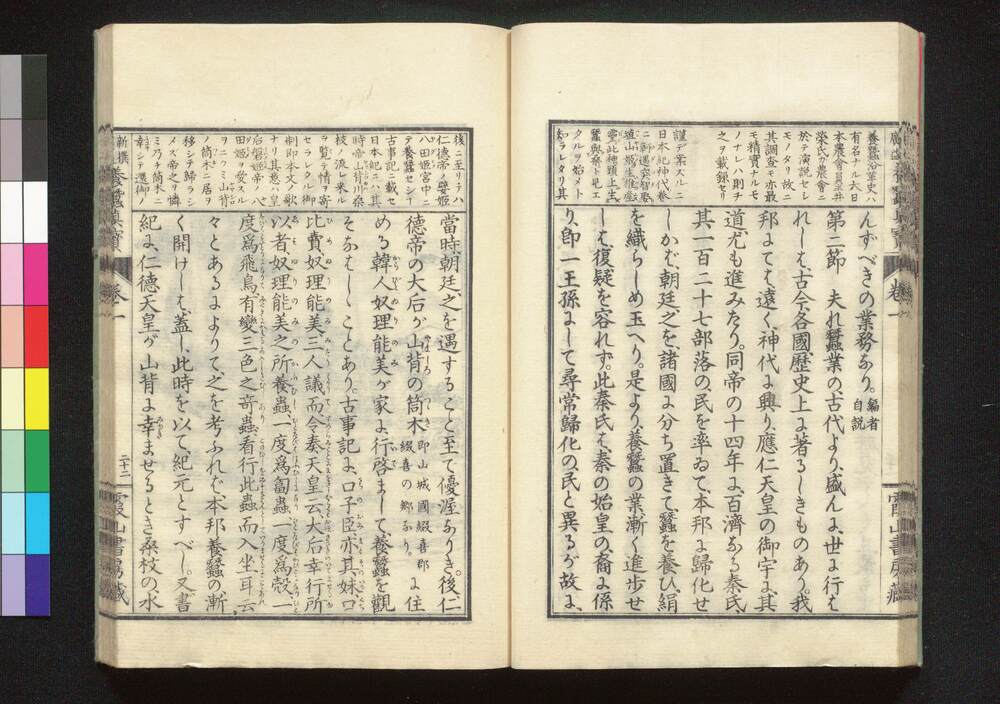 養蠶沿革史ハ
有名ナル大日
本農會員
榮氏カ農會ニ
於テ演説セシ
モノタリ故ニ
其調査モ亦最
モ精實ナルモ
ノナレハ則チ
之ヲ載録セリ
謹デ案スルニ
日本紀神代卷
蠶與桑ト見エ
タルヲ始メト
知ラレタリ其
んずべきの業務なり。編者自説
第二節 夫れ蠶業の、古代より、盛んよ、世よ行も
れしも、古今、各國歷史上よ著るしきものあり。我
邦よても、遠く神代よ興り、應仁天皇の御宇よ、其
道尤も進みたり。同帝の十四年よ、百濟なる秦氏、
其一百二十七部落の民を率ゐて、本邦よ歸化せ
しかば、朝廷之を、諸國よ分ち置きて、蠶を養ひ、絹
を織らしめ玉へり。是より、養蠶の業、漸く進歩せ
しも、復疑を容れず。此秦氏も、秦の始皇の裔よ係
り、卽一王孫よして、尋常歸化の民と異るが故よ、
後ニ至リテハ
仁德帝ノ嬖姬
八田姬宮中ニ
テ養蠶セシ
古事記ニ載セ
日本紀ニハ其
時帝山背川桑
枝ノ流レ來ル
ヲ覧テ情ヲ寄
セラレタル御
制即本文ノ歌
ナリ其意ハ皇
后磐姬帝ノ八
田姬ヲ愛スル
ノ筒木ニ居ヲ
移シテ歸ラシ
メズ帝之ヲ憐
ミ乃チ筒木ニ
幸シテ還御ノ
當時、朝廷之を遇すること至て優渥なりき。後、仁
德帝の大后が、山背の筒木卽山城國綴喜郡綴喜の鄕なり。よ住
める韓人奴理能美が家よ、行啓まして、養蠶を觀
そなもしゝことあり。古事記よ、口子臣、亦其妹口
比賣、奴理能美、三人議而、令奏天皇云、大后幸行所
以者、奴理能美之所養蟲、一度爲匐蟲、一度爲殼、一
度爲飛鳥、有變三色之奇蟲、看行此蟲而入坐耳云
々とあるよよりて、之を考ふれば、本邦養蠶の、漸
く開けしも、蓋し、此時を以て、紀元とすべし。又書
紀よ、仁德天皇が、山背よ幸ませるとき、桑枝の、水
新撰養蠶眞寶
卷一
二十二
霞山書房藏
卷一
霞山書房藏